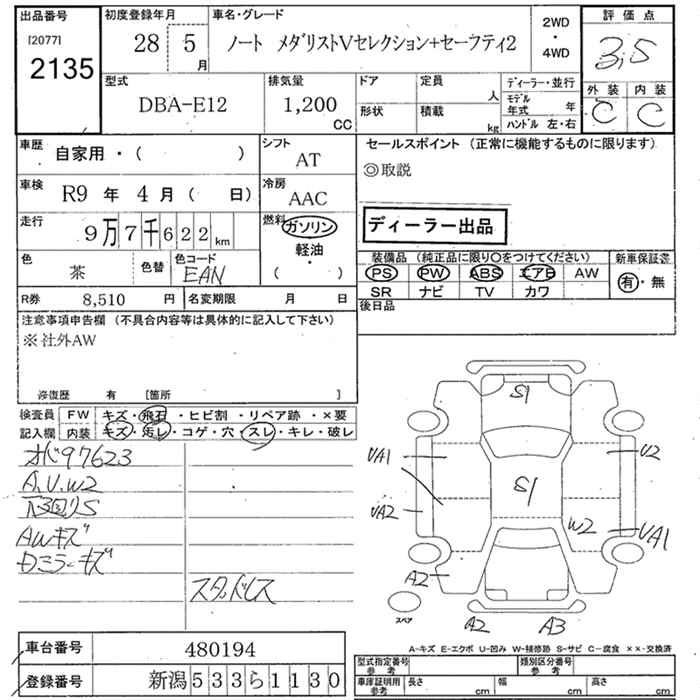 出品番号
[2077]
2135
初度登録年月
28 5 月
車名・グレード
ノート メダリストVセレクション+セーフティ2
2WD
・
4WD
評価点
3.5
外装 内装
C C
型式
DBA-E12
排気量
1,200
CC
ドア
形状
定員 人
積載 kg
ディーラー・並行
モデル年式 年
ハンドル 左・右
車歴 自家用・( )
シフト
AT
車検 R9 年 4 月 ( 日)
冷房
AAC
走行 9万7千622km
燃料 ガソリン
軽油
・
( )
色 茶
色替
色コード
EAN
R券 8,510 円
名変期限 月 日
セールスポイント (正常に機能するものに限ります)
◎取説
ディーラー出品
装備品 (純正品に限り○をつけてください)
PS PW ABS エアB AW
SR ナビ TV カワ
新車保証書
有・無
後日品
注意事項申告欄 (不具合内容等は具体的に記入して下さい)
※社外AW
修復歴 有 [箇所 ]
検査員 FW キズ・飛石・ヒビ割・リペア跡・×要
記入欄 内装 キズ・汚レ・コゲ・穴・スレ・キレ・破レ
97623
A.U.W2
下回りS
AWキズ
Dミラーキズ
スタッドレス
S1
UA1
U2
S1
UA2
W2
UA1
A2
スペア
A2
A3
A-キズ E-エクボ U-凹み W-補修跡 S-サビ C-腐食 ××-交換済
車台番号 480194
登録番号 新潟533ら1130
型式指定番号
参考
類別区分番号
参考
車庫証明用
参考
長さ cm
幅 cm
高さ cm